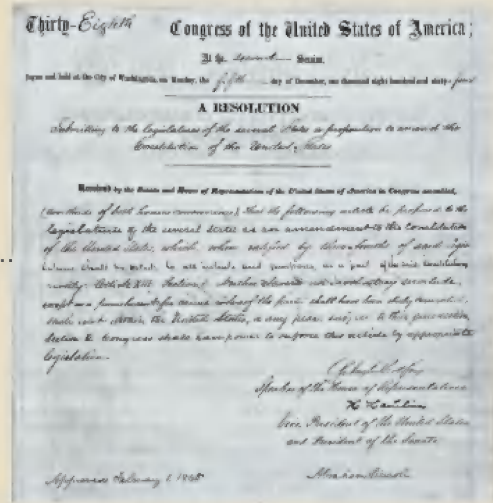 Thirty-Eighth Congress of the United States of America;
At the second Session,
Begun and held at the City of Washington, on Monday, the fifth day of December, one thousand eight hundred and sixty-four
A RESOLUTION
Submitting to the legislatures of the several States a proposition to amend the
Constitution of the United States
Resolved by the Senate and House of Representatives of the United States of America in Congress assembled,
(two thirds of both houses concurring), That the following article be proposed to the
legislatures of the several states as an amendment to the Constitution
of the United States, which, when ratified by three-fourths of said legis-
latures shall be valid, to all intents and purposes, as a part of the said Constitution
namely: Article XIII, Section 1. Neither slavery nor involuntary servitude,
except as a punishment for crime whereof the party shall have been duly convicted,
shall exist within the United States, or any place subject to their jurisdiction.
Section 2. Congress shall have power to enforce this article by appropriate
legislation.
Speaker of the House of Representatives
H Hamlin
Vice President of the United States
and President of the Senate
Approved February 1. 1865
Abraham Lincoln